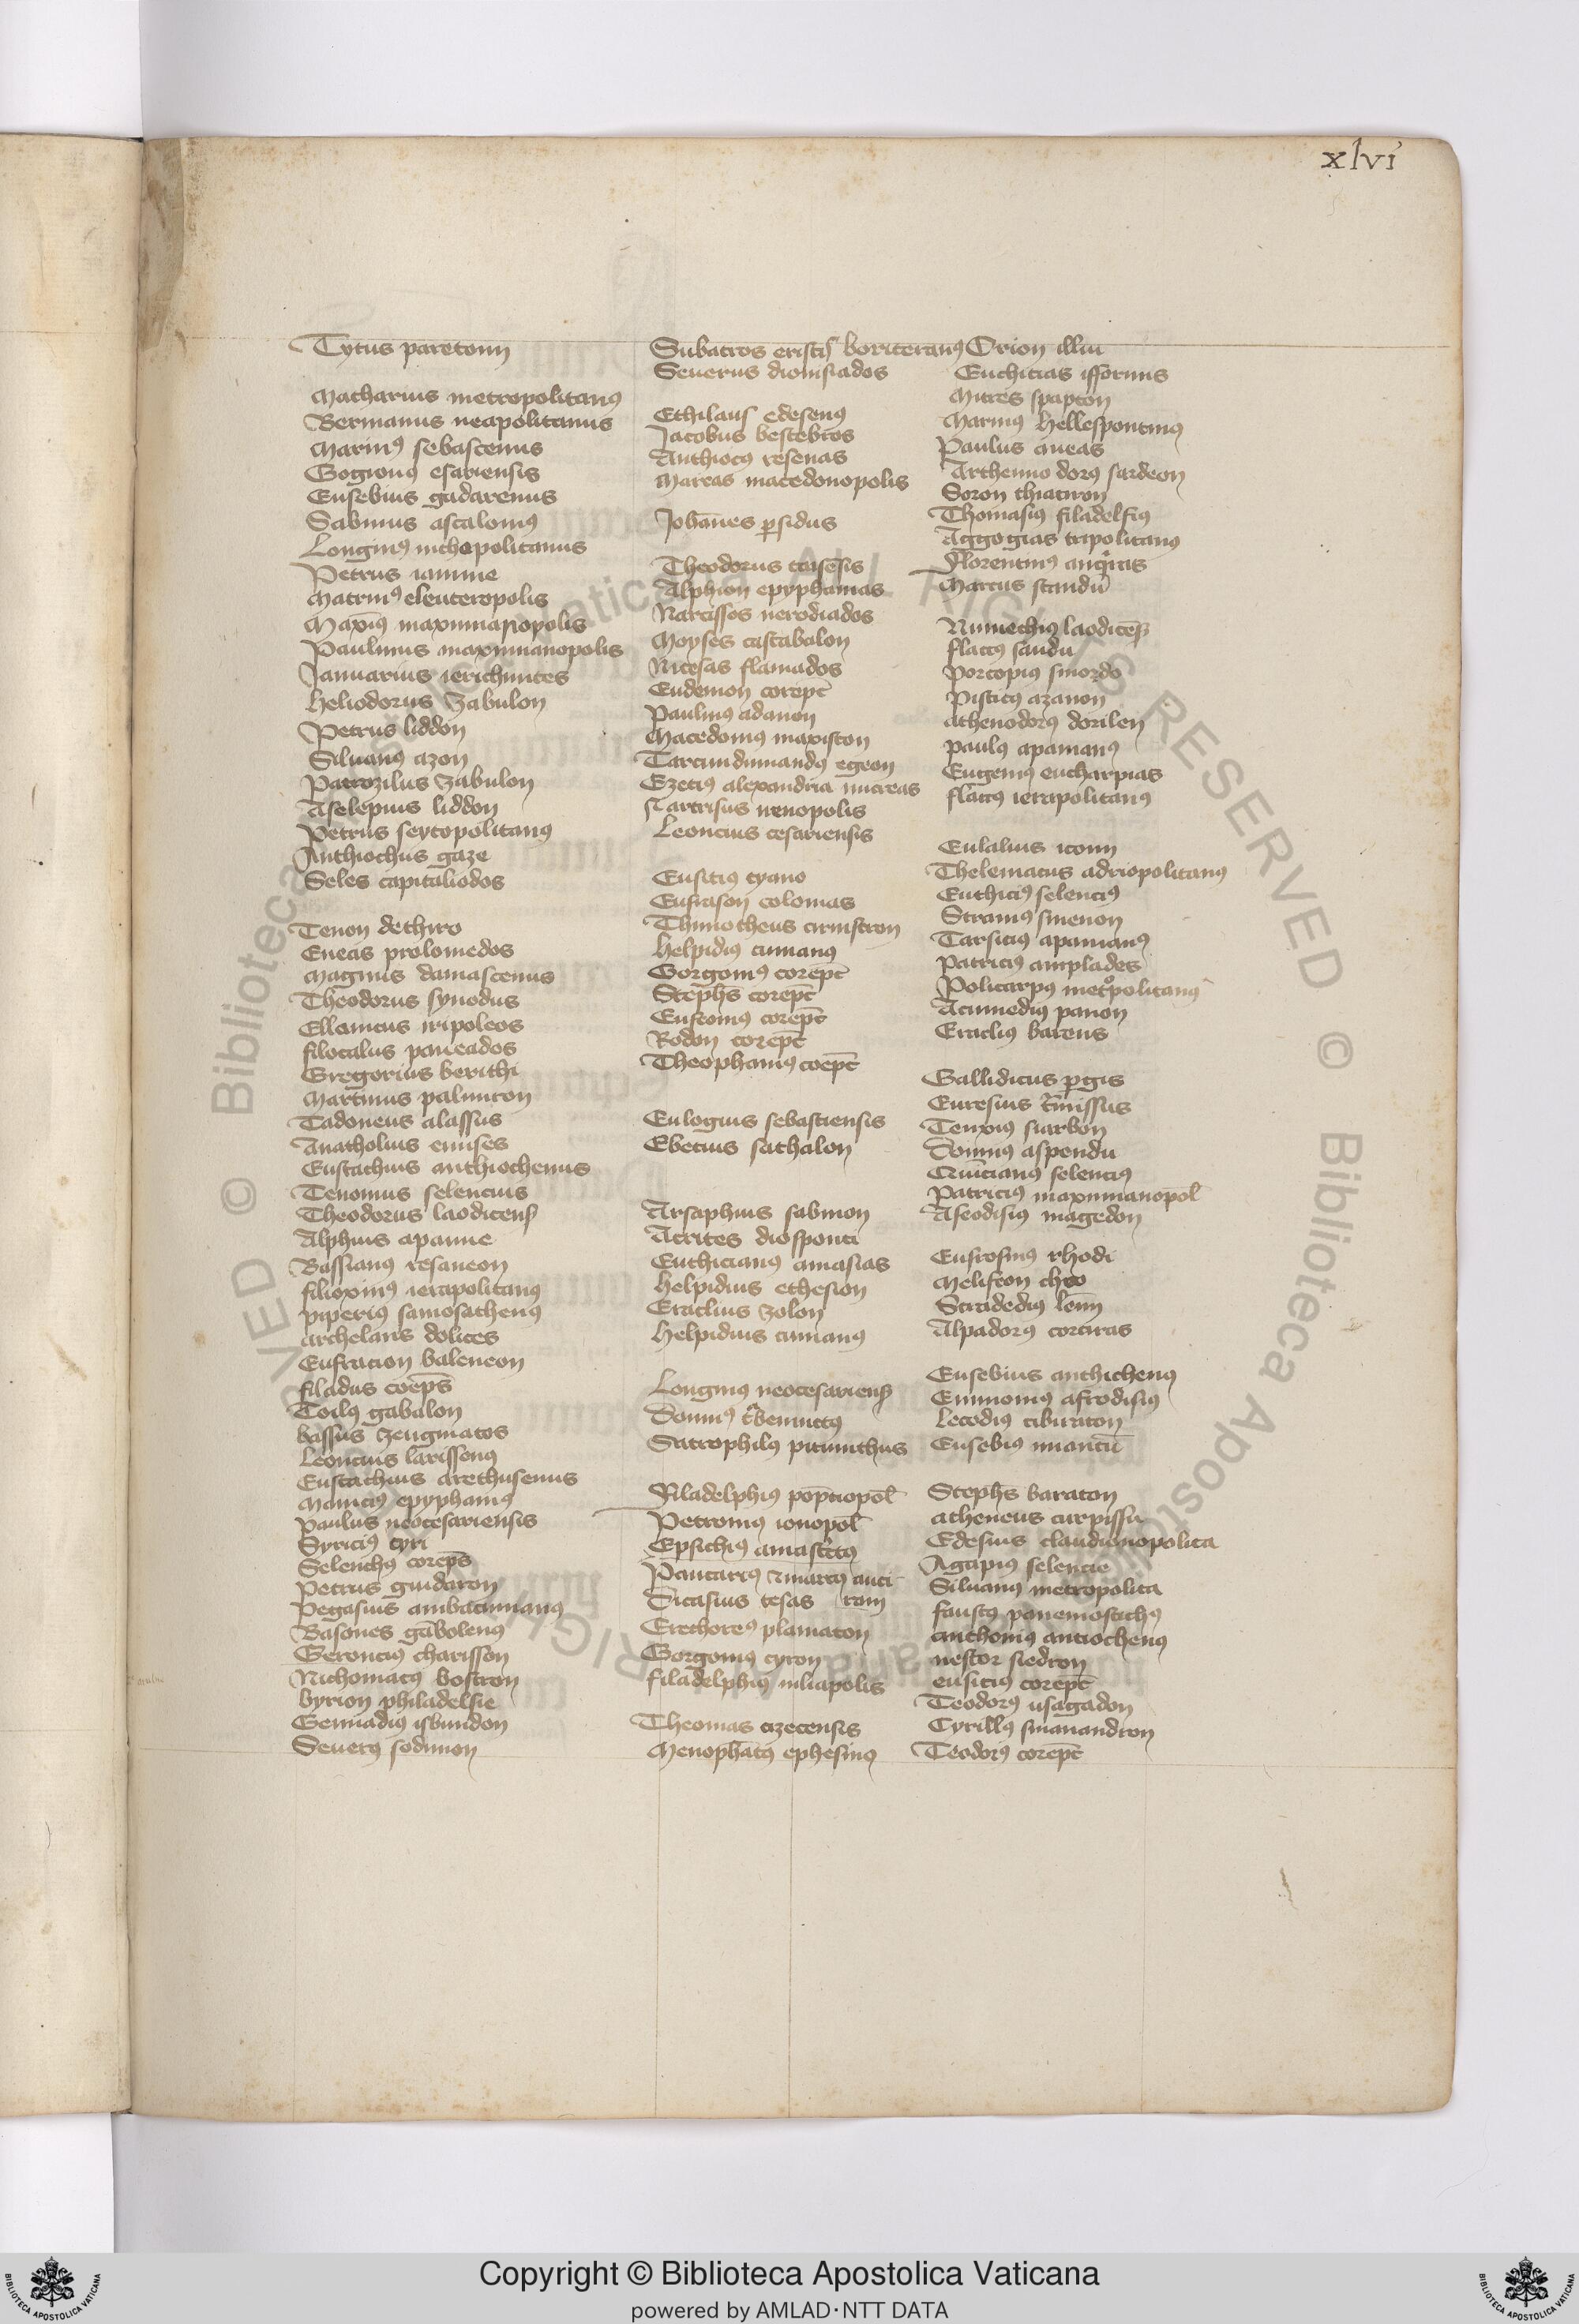 xlvi
Tytus paretonii
Macharius metropolitanꝰ
Bermanus neapolitanus
Marinꝰ sebastenus
Gogionꝰ esariensis
Eusebius gadarenus
Sabinus ascalonꝰ
Longinꝰ nichopolitanus
Petrus iamnie
Matrinꝰ eleuteropolis
Maxīꝰ maximianopolis
Paulinus maximianopolis
Januarius ierichuntes
heliodorus zabulon
Petrus liddon
Siluanꝰ azon
Patrozilus zabulon
Aselepius liddon
Petrus seytopolitanꝰ
Anthiochus gaze
Seles capitaliodos
Tenon dethiro
Eneas prolomedos
Magnus damascenus
Theodorus synodus
Ellanicus iripoleos
filocalus paneados
Gregorius berithi
Martinus palmiron
Tadoneus alassus
Anatholius emises
Eustachius anthiochenus
Tenonius seleucius
Theodorus laodicens
Alphius apanue
Bassianꝰ resaneon
filioxinꝰ ierapolitanꝰ
piperiꝰ samosathenꝰ
archelaus dolices
Eufracion baleneon
filadus coep̄s
Toilꝰ gabalon
bassus zeugmatos
Leoncius larissenꝰ
Eustachius arethusenus
Mauriciꝰ epyphaniꝰ
Paulus neocesariensis
Syriciꝰ tyri
Seleuchꝰ corep̄s
Petrus guidaron
Pegasius ambacumanꝰ
Basones gabolenꝰ
Geronciꝰ charisson
Nichomacꝰ bostron
byrion philadelfie
Gennadiꝰ isbundon
Seuerꝰ sodimon
Subatros eristis boriteranꝰ
Seuerus dionisiados
Ethilaus edesenꝰ
Jacobus bestebios
Anthiocꝰ resenas
Mareas macedonopolis
Johānes ꝑsidus
Theodorus tarsensis
Alphion epyphanias
Narcissos nerodiados
Moyses castabalon
Nicesas flamados
Eudemon corep̄t
Paulinꝰ adanon
Macedonꝰ maxiston
Tarcundimandꝰ egeon
Ezeciꝰ alexandria micreas
Nartrisus nenopolis
Leoncius cesariensis
Eusiciꝰ tyano
Eufrason colonias
Thimotheus cimistron
helpidiꝰ cumanꝰ
Gorgoniꝰ corep̄t
Stephs corep̄t
Eustoniꝰ corep̄t
Rodon corep̄t
Theophaniꝰ coep̄t
Eulogius sebastiensis
Ebecius sathalon
Arsaphius sabmon
Acrites diosponti
Euthicianꝰ amasias
helpidius ethesion
Eraclius zolon
helpidius cumanꝰ
Longinꝰ neocesariens
Satrophilꝰ pitunthus
Filadelphiꝰ pop̄tiopol̄
Petronius ionopol̄
Epsichiꝰ amastrꝰ
Dicasius tesas
Erethoreꝰ plamaton
Gorgoniꝰ cyron
filadelphiꝰ iuliapolis
Theomas cizecensis
Menophātꝰ ephesinꝰ
Orion illiu
Euchicias issorims
Mitres spapton
Marinꝰ hellespontinꝰ
Paulus aneas
Arthenno dorꝰ sardeon
Soron thiatiron
Thomasiꝰ filadelfiꝰ
Aggogias tripolitanꝰ
Marcus standū
Numechiꝰ laodicēs
flaccꝰ sandu
porcopius sinordo
Pisticꝰ azanon
athenodorꝰ dorilen
paulꝰ apamanꝰ
Eugeniꝰ eucharpias
flaccꝰ ierapolitanꝰ
Eulalius iconii
Thelematus adriopolitanꝰ
Euthiciꝰ seleuciꝰ
Stramꝰ smenon
Tarsiciꝰ apamanꝰ
Patriciꝰ amplades
Policarpꝰ metropolitanꝰ
Acumediꝰ panon
Eracliꝰ bareus
Gallidicus ꝑgis
Euresius t̄missus
Teuxiꝰ siarbon
Domnꝰ aspendu
Quīcianꝰ seleuciꝰ
Patriciꝰ maximianopol̄
Aseodisiꝰ magedon
Eufrosinꝰ rhodi
Melifron choo
Alpadorꝰ corciras
Eusebius anthichenꝰ
Emmoniꝰ afrodisiꝰ
Lecodiꝰ ciburaton
Eusebiꝰ miancū
Stephs baraton
atheneus curpissu
Edesius claudianopolita
Agapiꝰ seleucie
Siluanꝰ metropolita
faustꝰ panemostichꝰ
anthoniꝰ antiochenꝰ
nestor siedron
eusiciꝰ corep̄t
Teodorꝰ usagadon
Cyrillꝰ smanandron
Teodorꝰ corep̄t
Copyright © Biblioteca Apostolica Vaticana
powered by AMLAD·NTT DATA